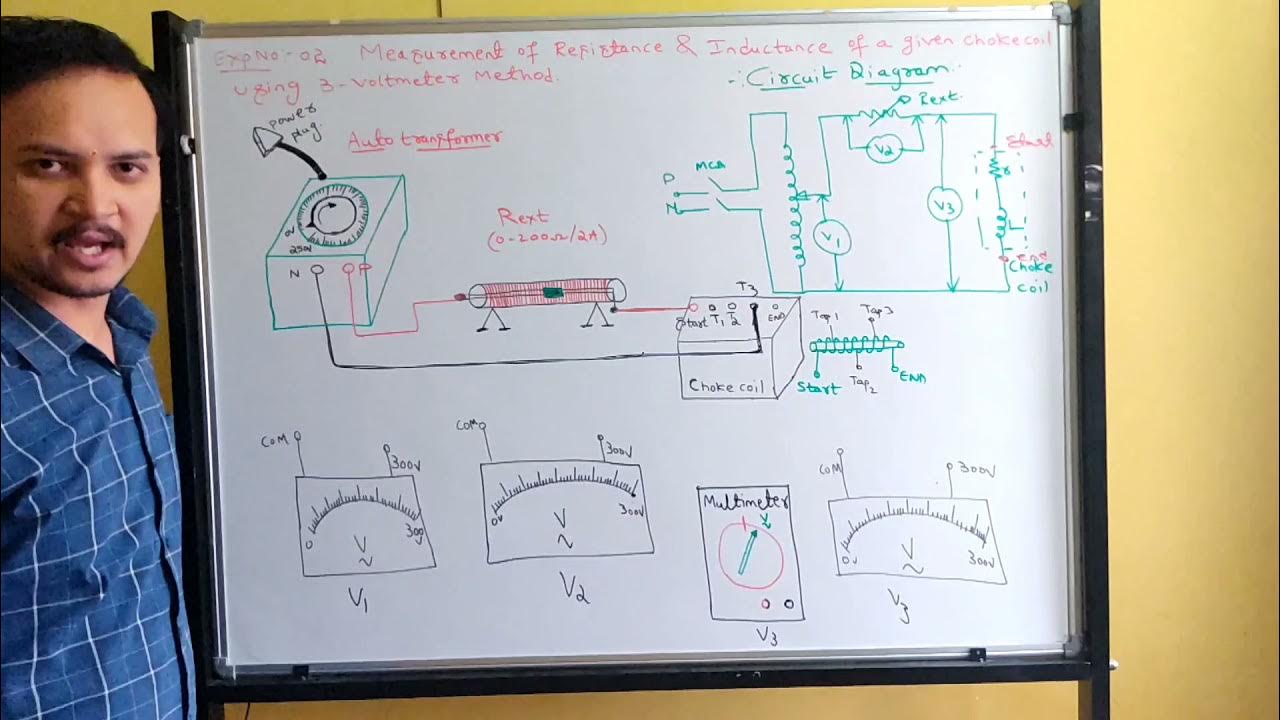 Exp No:-02 Measurement of Resistance & Inductance of a given choke coil
using 3-Voltmeter Method.
-:Circuit Diagram:-
power
plug.
Auto transformer
0V
250V
N
P
Rext
(0-200Ω/2A)
T3
Start T1 T2 END
Choke coil
P
N
MCB
Rext.
V2
V1
V3
Start
r
L
end
Choke
coil
Tap1
Tap3
Start
Tap2
END
COM
300V
0
300
V
V
~
V1
COM
300V
0V
300V
V
~
V2
Multimeter
V
V3
COM
300V
0V
300V
V
~
V3